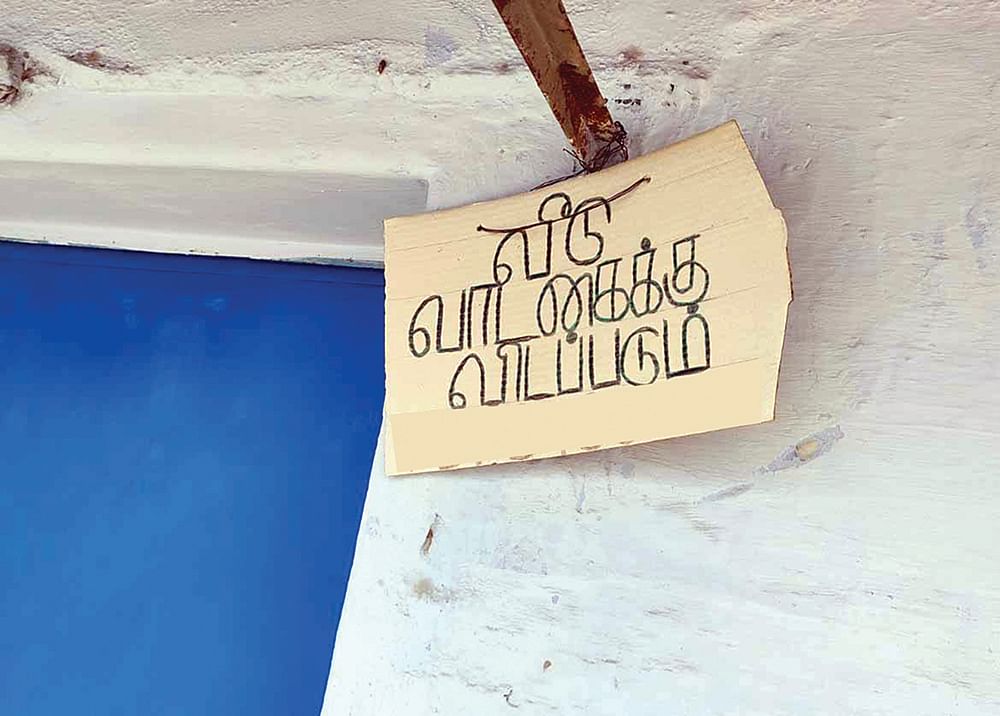 வீடு
வாடகைக்கு
விடப்படும்